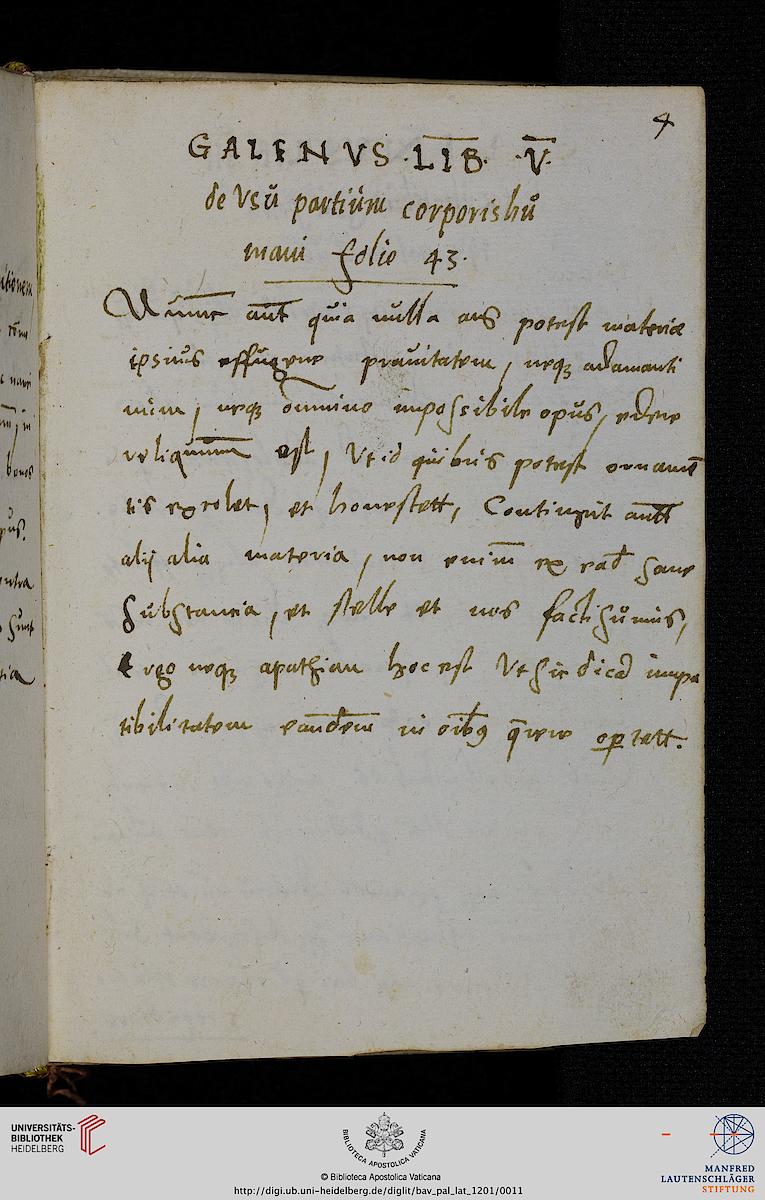 4
GALENVS ·LIB· ·V̅·
de Vsŭ partium corporis hŭ
mani folio 43.
Nunc aut̄ quia nulla ars potest materiæ
ipsius effugere prauitatem, neqꝫ adamanti
nūm, neqꝫ omnino impossibile opus, edere
reliquum est, Vt id quibus potest ornamē
tis excolet, et honestett, Contingit autt
alij alia materia, non enim̄ ex ead̄ sane
substantia, et stelle et nos facti sŭmus,
Ergo neqꝫ apathian hoc est Vt sic dicā impa
tibilitatem eandem in oībꝰ q̄rere oportett.
UNIVERSITÄTS-
BIBLIOTHEK
HEIDELBERG
BIBLIOTECA APOSTOLICA VATICANA
© Biblioteca Apostolica Vaticana
http://digi.ub.uni-heidelberg.de/diglit/bav_pal_lat_1201/0011
MANFRED
LAUTENSCHLÄGER
STIFTUNG